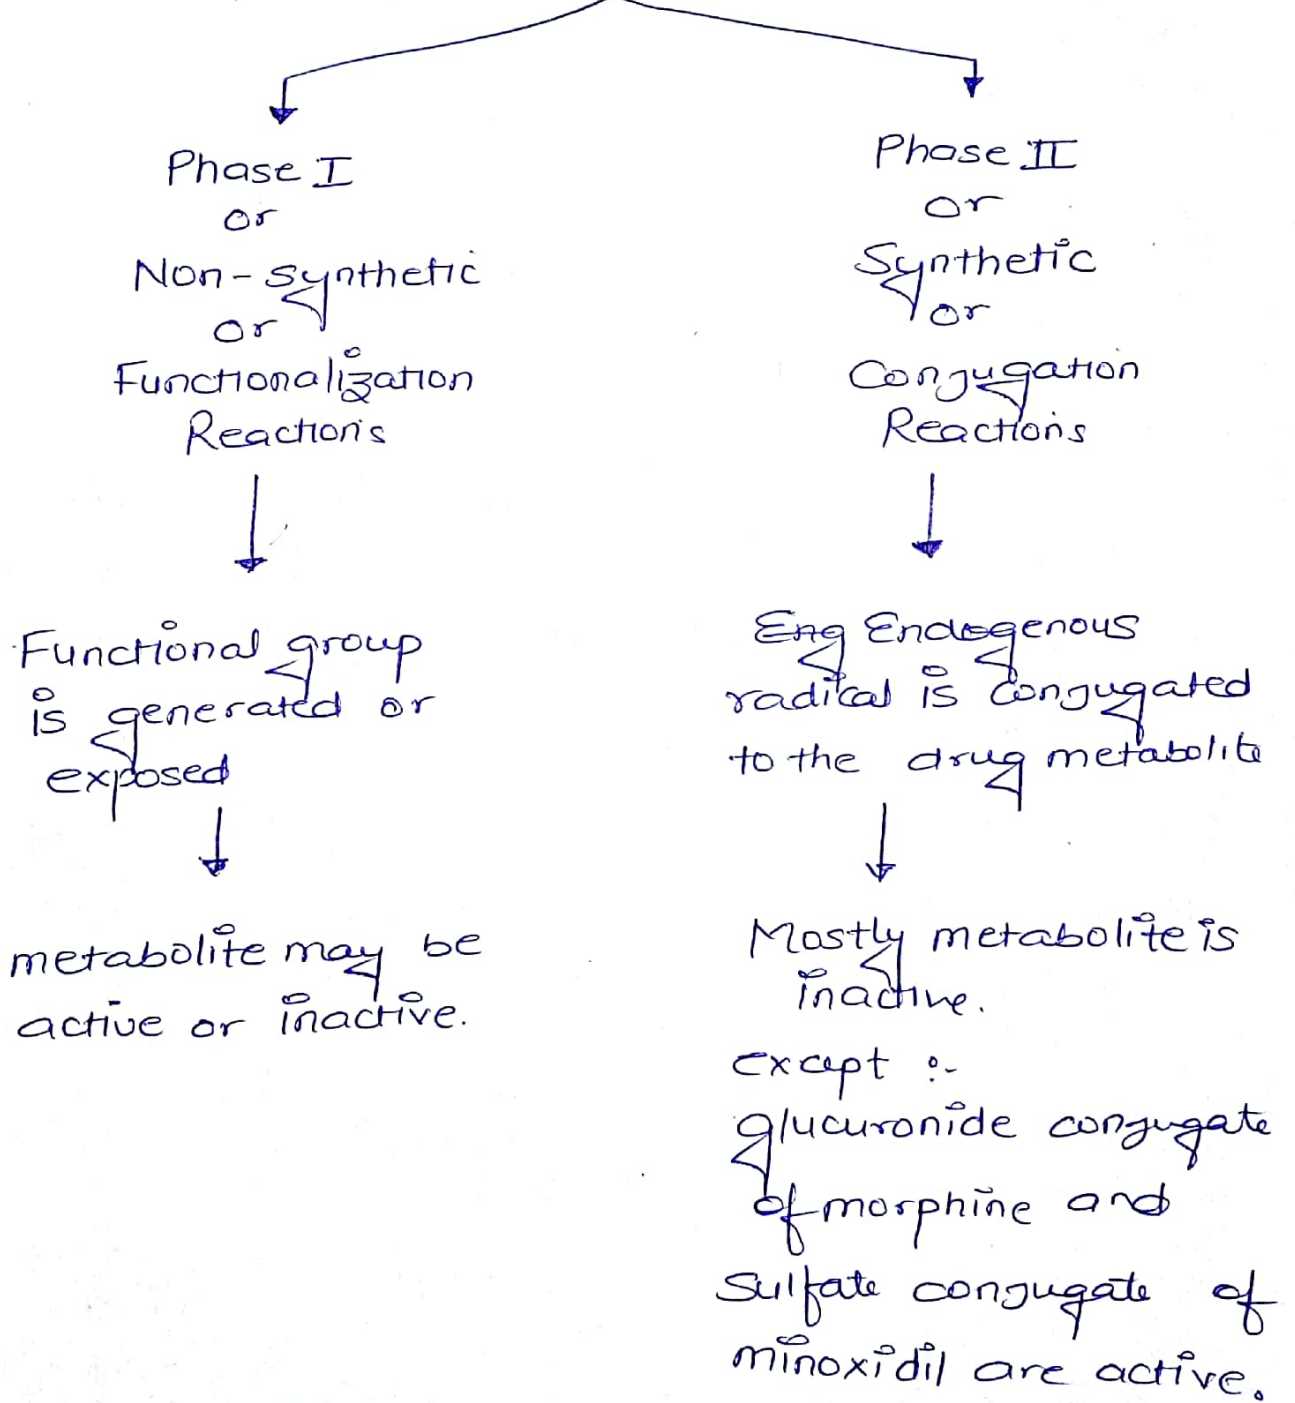 Phase I
or
Non-synthetic
or
Functionalization
Reactions
Functional group
is generated or
exposed
metabolite may be
active or inactive.
Phase II
or
Synthetic
or
Conjugation
Reactions
Eng Endogenous
radical is conjugated
to the drug metabolite
Mostly metabolite is
inactive.
except :-
glucuronide conjugate
of morphine and
Sulfate conjugate of
minoxidil are active.